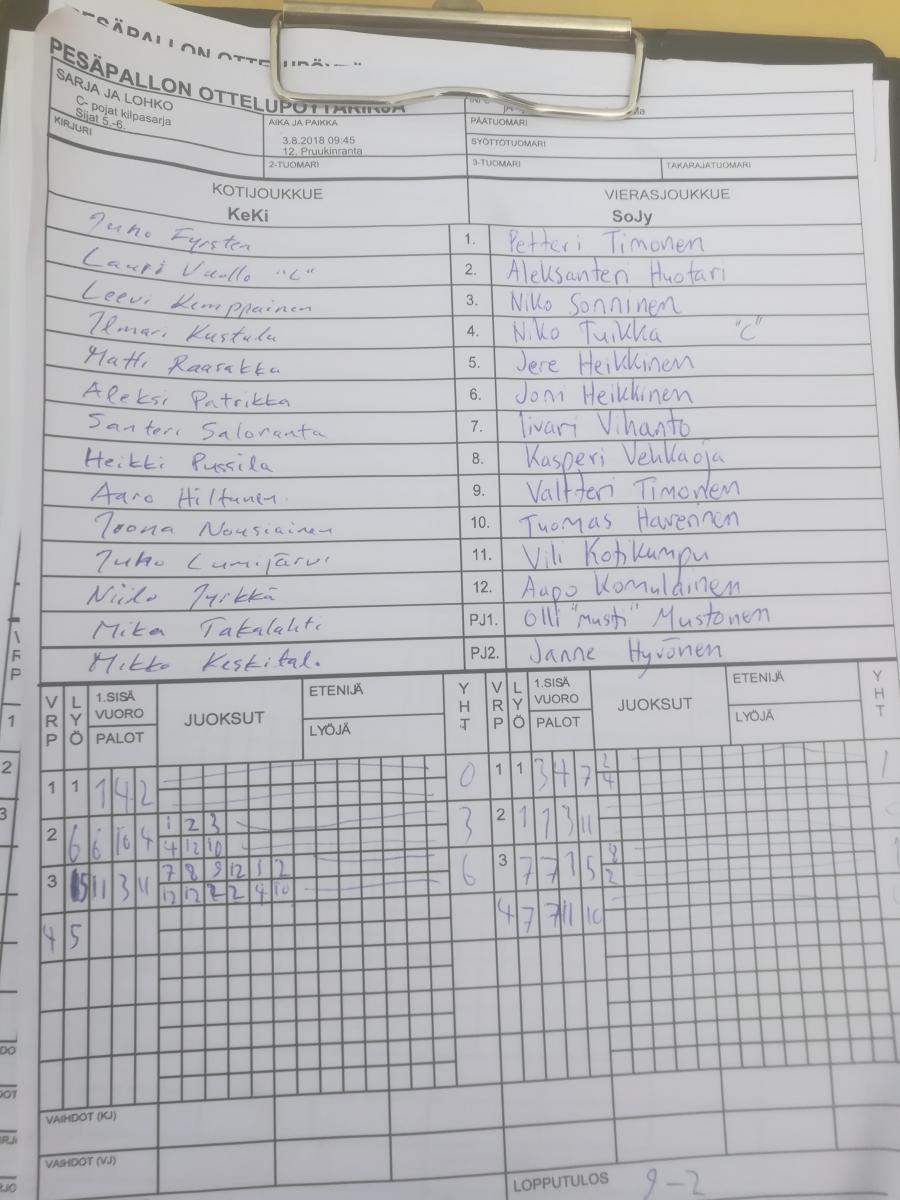 PESÄPALLON OTTELUPÖYTÄKIRJA
SARJA JA LOHKO
C- pojat kilpasarja
Sijat 5.-6.
KIRJURI
AIKA JA PAIKKA
3.8.2018 09:45
12. Pruukinranta
2-TUOMARI
PÄÄTUOMARI
SYÖTTÖTUOMARI
3-TUOMARI TAKARAJATUOMARI
KOTIJOUKKUE VIERASJOUKKUE
KeKi SoJy
Juho Fyrsten 1. Petteri Timonen
Lauri Vuollo "C" 2. Aleksanteri Huotari
Leevi Kemppainen 3. Niko Sonninen
Ilmari Kustula 4. Niko Tuikka "C"
Matti Raasakka 5. Jere Heikkinen
Aleksi Patrikka 6. Joni Heikkinen
Santeri Saloranta 7. Iivari Vihanto
Heikki Pussila 8. Kasperi Vehkaoja
Aaro Hiltunen 9. Valtteri Timonen
Joona Nousiainen 10. Tuomas Haverinen
Juho Lumijärvi 11. Vili Kotikumpu
Niilo Jyrkkä 12. Aapo Komulainen
Mika Takalahti PJ1. Olli "Musti" Mustonen
Mikko Keskital. PJ2. Janne Hyvönen
VRP LYÖ 1.SISÄ VUORO PALOT JUOKSUT ETENIJÄ LYÖJÄ YHT VRP LYÖ 1.SISÄ VUORO PALOT JUOKSUT ETENIJÄ LYÖJÄ YHT
1 1 1 4 2 0 1 1 3 4 7 2 1
4
2 6 6 10 4 1 2 3 3 2 1 1 3 11
4 12 10
3 15 11 3 11 7 8 9 12 1 2 6 3 7 7 1 5 8
12 12 2 2 4 10 2
4 5 4 7 7 11 10
VAIHDOT (KJ)
VAIHDOT (VJ)
LOPPUTULOS 9-2